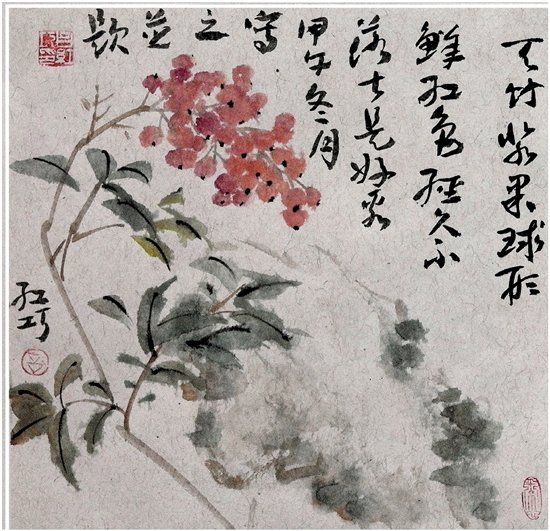 天竹浆果球形
鲜红色经久不
落是好看
甲午冬月
写
之
並
题
红巧